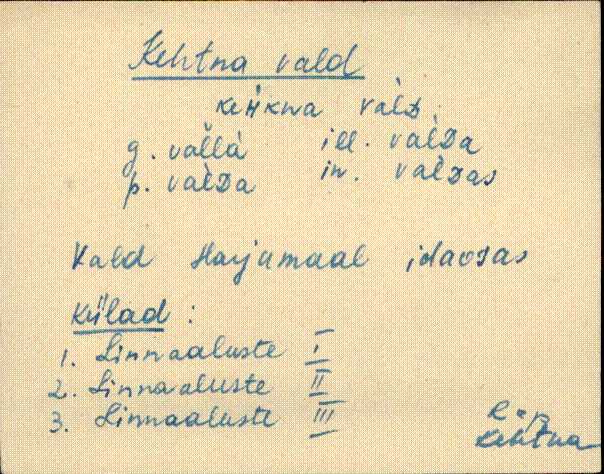 Kehtna vald
keHkna vàlD
g. vàllà ill. vàlDa
p. vàlDa in. vàlDas
Vald Harjumaal idaosas
Külad :
1. Linnaaluste I
2. Linnaaluste II
3. Linnaaluste III
Rap
Kehtna